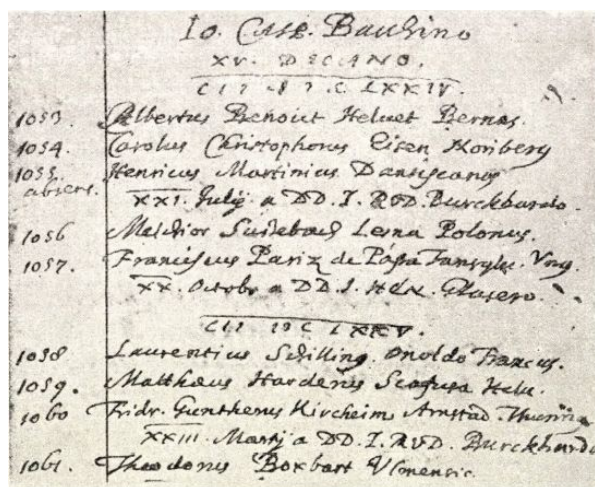 Io. Casp. Bauhino
XV. DECANO.
CIƆ IƆ C LXXIV.
1053. Albertus Benoict Helvet Bernas.
1054. Carolus Christophorus Eisen Noriberg
1055. Henricus Martinius Dantiscanus
absens. XXI. Julij a DD. I. RVD. Burckhardo.
1056 Melchior Lesna Polonus.
1057. Franciscus Pariz de Pápa Transylv. Vng.
XX. Octobr a DD. I. Glasero.
CIƆ IƆ C LXXV.
1058 Laurentius Schilling. Onoldo Francus.
1059. Matthæus Harderus Scafusa Helv.
1060 Fridr. Guntherus Kircheim Arnstad.
XXIII. Martij a DD. I. RVD. Burckhardo
1061. Theodorus Boxbart Vlmensis